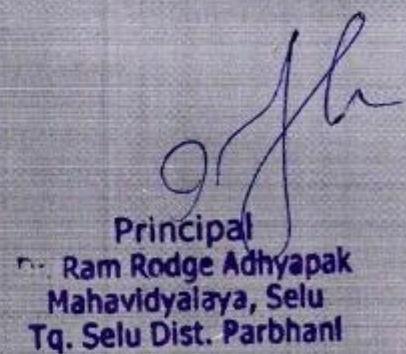 Principal
Ram Rodge Adhyapak
Mahavidyalaya, Selu
Tq. Selu Dist. Parbhani